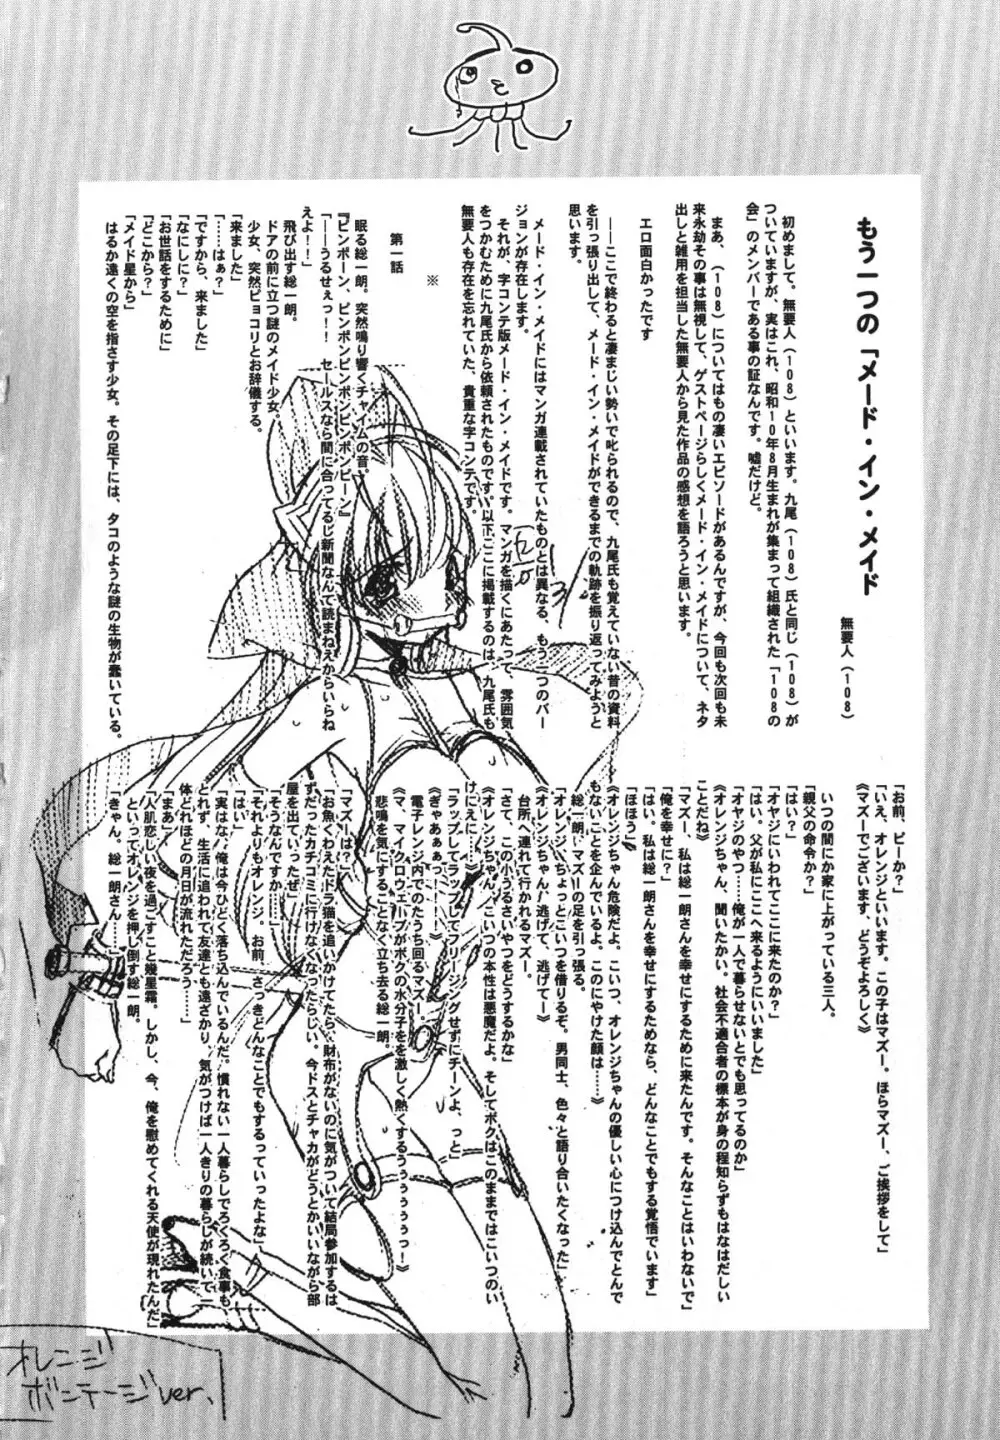 もう一つの「メード・イン・メイド
無要人(108)
初めまして、無要人(108)といいます。九尾(108)氏と同じ(108)が
ついていますが、実はこれ、昭和10年8月生まれが集まって組織された「108の
会」のメンバーである事の証なんです。嘘だけど。
まあ、(108)についてはもの凄いエピソードがあるんですが、今回も次回も未
来永劫その事は無視して、ゲストページらしくメード・イン・メイドについて、ネタ
出しと雑用を担当した無要人から見た作品の感想を語ろうと思います。
エロ面白かったです
――ここで終わると凄まじい勢いで叱られるので、九尾氏も覚えていない昔の資料
を引っ張り出して、メード・イン・メイドができるまでの軌跡を振り返ってみようと
思います。
メード・イン・メイドにはマンガ連載されていたものとは異なる、もう一つのバー
ジョンが存在します。
それが、字コンテ版メード・イン・メイドです。マンガを描くにあたって、雰囲気
をつかむために九尾氏から依頼されたものです。以下ここに掲載するのは、九尾氏も
無要人も存在を忘れていた、貴重な字コンテです。
※
第一話
眠る総一朗。突然鳴り響くチャイムの音。
『ピンポーン、ピンポンピンポンピンポンピーン』
「――うるせぇっ!! セールスなら間に合ってるじ新聞なんて読まねえからいらね
えよ!!」
飛び出す総一朗。
ドアの前に立つ謎のメイド少女。
少女、突然ピョコリとお辞儀する。
「来ました」
「……はぁ?」
「ですから、来ました」
「なにしに?」
「お世話をするために」
「どこから?」
「メイド星から」
はるか遠くの空を指さす少女。その足下には、タコのような謎の生物が蠢いている。
「お前、ピーか?」
「いえ、オレンジといいます。この子はマズー。ほらマズー、ご挨拶をして」
《マズーでございます、どうぞよろしく》
いつの間にか家に上がっている三人。
「親父の命令か?」
「はい?」
「オヤジにいわれてここに来たのか?」
「はい。父が私にここへ来るようにいいました」
「オヤジのやつ……俺が一人で暮らせないとでも思ってるのか」
《オレンジちゃん、聞いたかい、社会不適合者の標本が身の程知らずもはなはだしい
ことだね》
「マズー、私は総一朗さんを幸せにするために来たんです。そんなことはいわないで」
「俺を幸せに?」
「はい、私は総一朗さんを幸せにするためなら、どんなことでもする覚悟でいます」
「ほほう」
《オレンジちゃん危険だよ。こいつ、オレンジちゃんの優しい心につけ込んでとんで
もないことを企んでいるよ。このにやけた顔は……》
総一朗、マズーの足を引っ張る。
「オレンジちょっとこいつを借りるぞ。男同士、色々と語り合いたくなった」
《オレンジちゃん〜逃げて、逃げてー》
台所へ連れて行かれるマズー。
「さて、この小うるさいやつをどうするかな」
《オレンジちゃん、こいつの本性は悪魔だよ。そしてボクはこのままではこいつのい
けにえに……》
「ラップしてラップしてフリージングせずにチーンよ、っと」
《ぎゃあぁぁっ!!》
電子レンジ内でのたうち回るマズー。
《マ、マイクロウェーブがボクの水分子をを激しく熱くするうぅぅぅぅぅっ!》
悲鳴を気にすることなく立ち去る総一朗。
「マズーは?」
「お魚くわえたドラ猫を追いかけてたら、財布がないのに気がついて結局参加するは
ずだったカチコミに行けなくなったらしい。今ドスとチャカがどうとかいいながら部
屋を出ていったぜ」
「そうなんですか」
「それよりもオレンジ。お前、さっきどんなことでもするっていったよな」
「はい」
「実はな、俺は今ひどく落ち込んでいるんだ。慣れない一人暮らしでろくろく食事も
とれず、生活に追われて友達とも遠ざかり、気がつけば一人きりの暮らしが続いて一
体どれほどの月日が流れただろう……」
「まあ」
「人肌恋しい夜を過ごすこと幾星霜。しかし、今、俺を慰めてくれる天使が現れたんだ」
といってオレンジを押し倒す総一朗。
「きゃん。総一朗さん……」
オレンジ
ボンテージver.